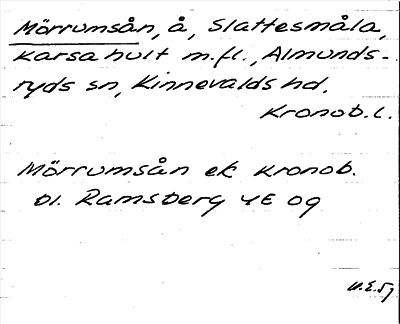 Mörrumsån, å, Slattesmåla,
Karsahult m.fl., Almunds-
ryds sn, Kinnevalds hd.
Kronob. l.
Mörrumsån ek Kronob.
bl. Ramsberg 4E 09